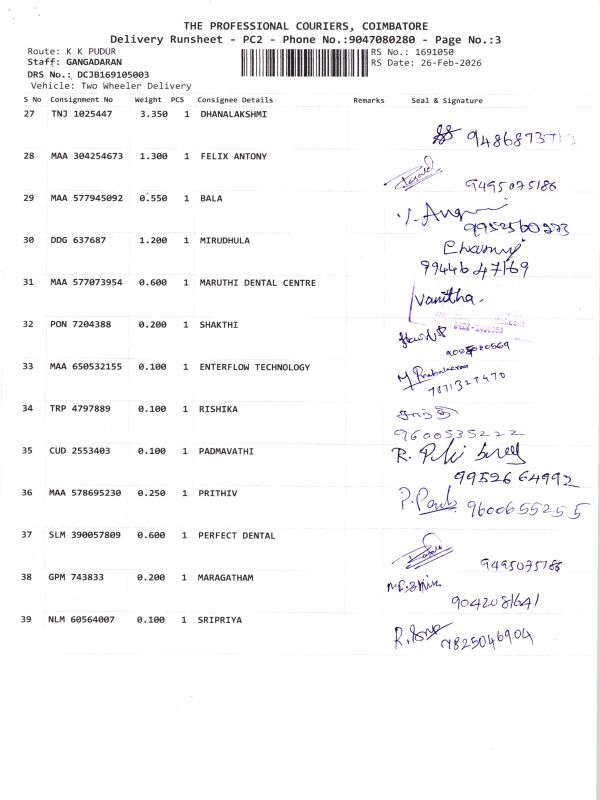 THE PROFESSIONAL COURIERS, COIMBATORE
Delivery Runsheet - PC2 - Phone No.:9047080280 - Page No.:3
Route: K K PUDUR
RS No.: 1691050
Staff: GANGADARAN
RS Date: 26-Feb-2026
DRS No.: DCJB169105003
Vehicle: Two Wheeler Delivery
S No Consignment No Weight PCS Consignee Details Remarks Seal & Signature
27 TNJ 1025447 3.350 1 DHANALAKSHMI
28 MAA 304254673 1.300 1 FELIX ANTONY
9495075186
29 MAA 577945092 0.550 1 BALA
30 DDG 637687 1.200 1 MIRUDHULA
9944647169
31 MAA 577073954 0.600 1 MARUTHI DENTAL CENTRE
Vanitha
32 PON 7204388 0.200 1 SHAKTHI
33 MAA 650532155 0.100 1 ENTERFLOW TECHNOLOGY
M Prabakaran
7871327470
34 TRP 4797889 0.100 1 RISHIKA
சாந்தி
9600535222
35 CUD 2553403 0.100 1 PADMAVATHI
9952664992
36 MAA 578695230 0.250 1 PRITHIV
9600655255
37 SLM 390057809 0.600 1 PERFECT DENTAL
9495075186
38 GPM 743833 0.200 1 MARAGATHAM
9042081641
39 NLM 60564007 0.100 1 SRIPRIYA
9825046904